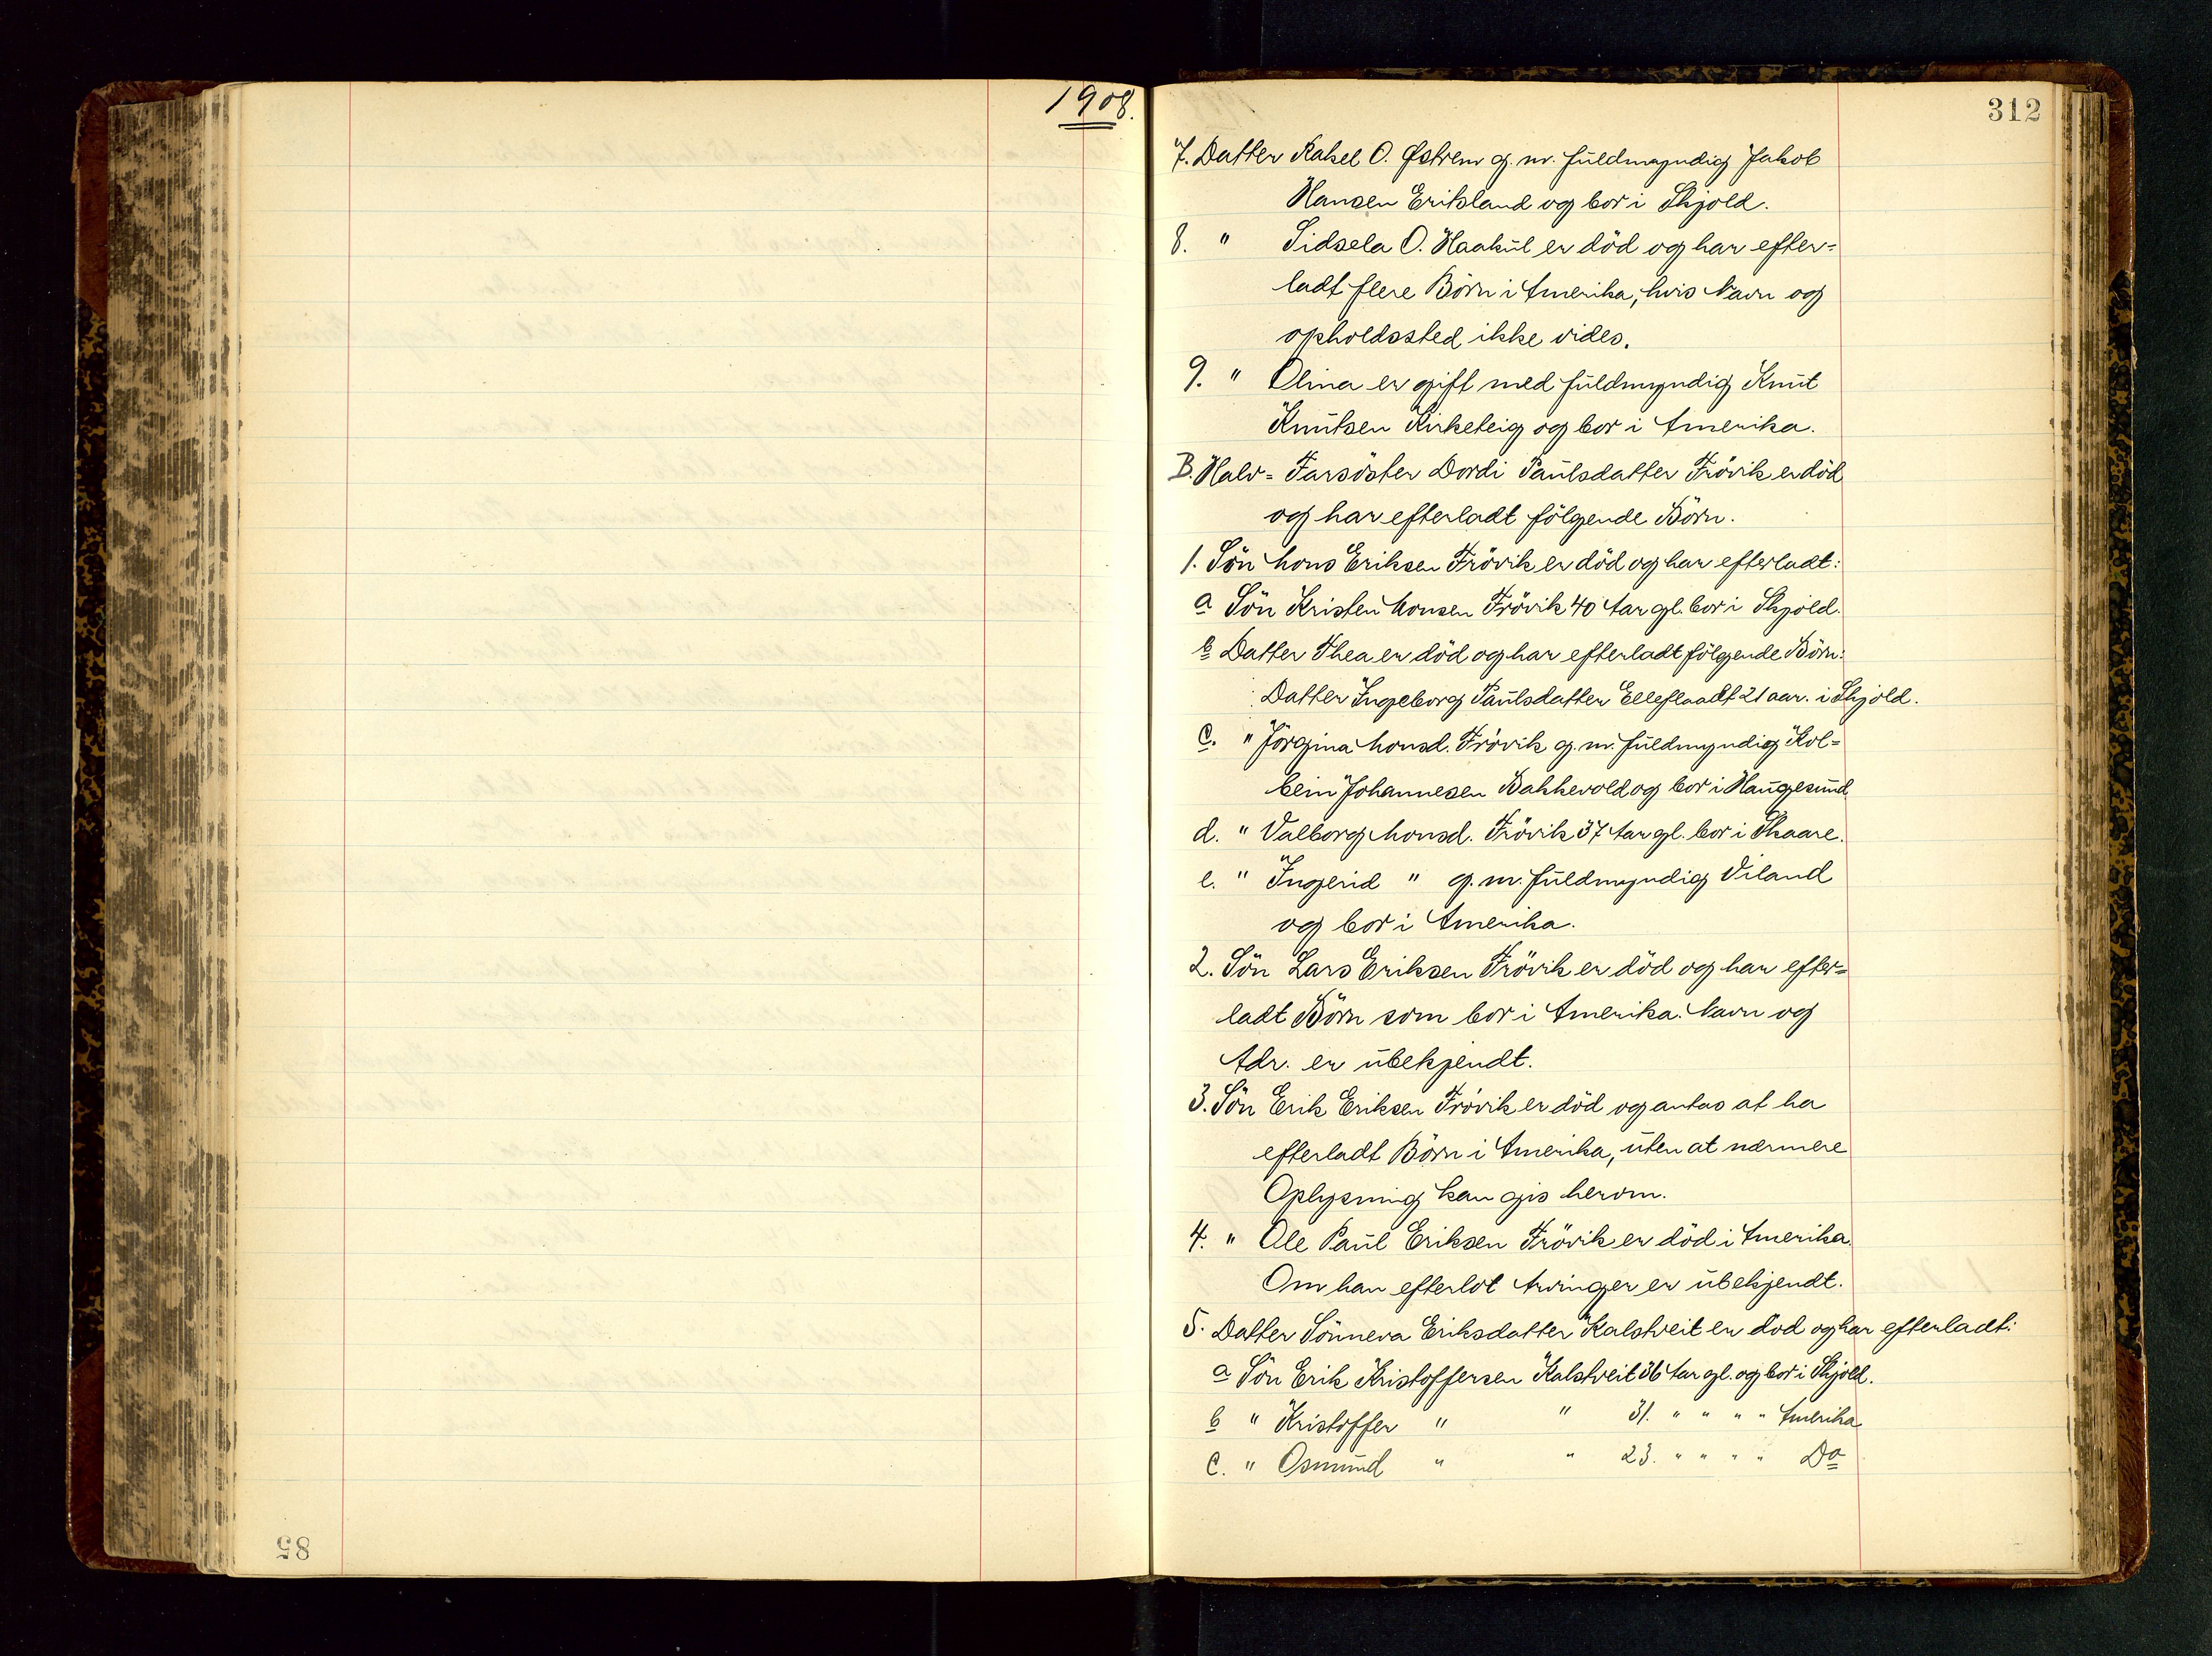 1908.
85
312
7. Datter Rakel O. Østrem g. m. fuldmyndig Jakob
Hansen Eriksland og bor i Skjold.
8. " Sidsela O. Haakul er död og har efter=
ladt flere Börn i Amerika, hvis Navn og
opholdssted ikke vides.
9. " Olina er gift med fuldmyndig Knut
Knutsen Kirketeig og bor i Amerika.
B. Halv= Farsöster Dordi Paulsdatter Frövik er död
og har efterladt fölgende Börn.
1. Sön Mons Eriksen Frövik er död og har efterladt:
a Sön Kristen Monsen Frövik 40 Aar gl. bor i Skjold.
b Datter Thea er död og har efterladt fölgende Börn:
Datter Ingeborg Paulsdatter 21 aar. i Skjold.
c. " Jörgina Monsd. Frövik g. m. fuldmyndig Kol=
bein Johannesen Bakkevold og bor i Haugesund.
d. " Valborg Monsd. Frövik 37 Aar gl. bor i Skaare.
e. " Ingerid " g. m. fuldmyndig Viland
og bor i Amerika.
2. Sön Lars Eriksen Frövik er död og har efter=
ladt Börn som bor i Amerika. Navn og
Adr. er ubekjendt.
3. Sön Erik Eriksen Frövik er död og antas at ha
efterladt Börn i Amerika, uten at nærmere
Oplysning kan gis herom.
4. " Ole Paul Eriksen Frövik er död i Amerika.
Om han efterlot Arvinger er ubekjendt.
5. Datter Sönneva Eriksdatter Kalstveit er död og har efterladt:
a Sön Erik Kristoffersen Kalstveit 36 Aar gl. og bor i Skjold.
b " Kristoffer " " 31. " " " " Amerika
c. " Osmund " " 23. " " " " Do